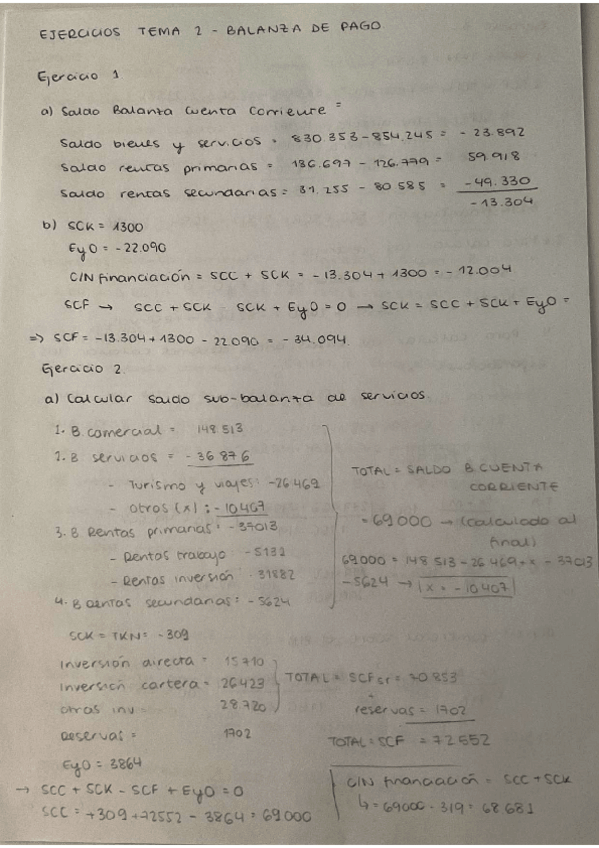 EJERCICIOS TEMA 2 - BALANZA DE PAGO
Ejercicio 1
a) Saldo Balanza Cuenta Corriente =
Saldo bienes y servicios = 830 353 - 854.245 = - 23.892
Saldo rentas primarias = 186.697 - 126.779 = 59.918
Saldo rentas secundarias = 31.255 - 80 585 = -49.330
-13.304
b) SCK = 1300
EyO = -22.090
C/N financiación = SCC + SCK = -13.304 + 1300 = -12.004
SCF → SCC + SCK - SCK + EyO = 0 → SCK = SCC + SCK + EyO =
=> SCF = -13.304 + 1300 - 22090 = - 34.094
Ejercicio 2
a) Calcular saldo sub-balanza de servicios
1. B. comercial = 148 513
2. B servicios = - 36 876
- Turismo y viajes: -26 469
- otros (x) : -10407
3. B. Rentas primarias: -37013
- Rentas trabajo -5132
- Rentas inversión -31882
4. B Rentas secundarias: -5624
TOTAL = SALDO B. CUENTA
CORRIENTE
= 69 000 → (calculado al
final)
69.000 = 148 513 - 26 469 + x - 37013
- 5624 → x = -10407
SCK = TKN = -309
Inversión directa = 15710
Inversión cartera = 26423
otras inv = 28.720
Reservas = 1702
EyO = 3864
TOTAL = SCFsr = 70.853
+
reservas = 1702
TOTAL = SCF = 72552
→ SCC + SCK - SCF + EyO = 0
SCC = +309 + 72552 - 3864 = 69000
C/N financiación = SCC + SCK
↳ = 69000 - 319 = 68 681